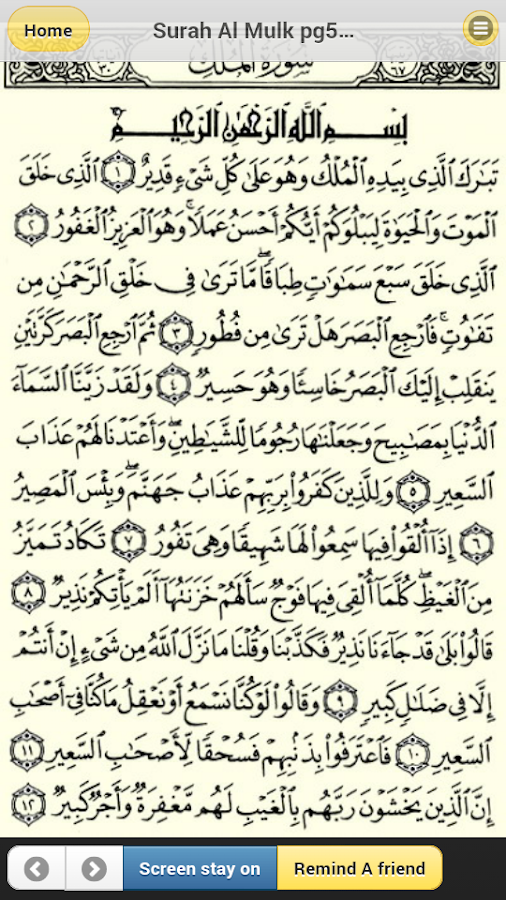 Home
Surah Al Mulk pg5...
سُورَةُ المُلْكِ
بِسْمِ ٱللَّهِ ٱلرَّحْمَٰنِ ٱلرَّحِيمِ
تَبَٰرَكَ ٱلَّذِى بِيَدِهِ ٱلْمُلْكُ وَهُوَ عَلَىٰ كُلِّ شَىْءٍ قَدِيرٌ ١ ٱلَّذِى خَلَقَ
ٱلْمَوْتَ وَٱلْحَيَوٰةَ لِيَبْلُوَكُمْ أَيُّكُمْ أَحْسَنُ عَمَلًا ۚ وَهُوَ ٱلْعَزِيزُ ٱلْغَفُورُ ٢
ٱلَّذِى خَلَقَ سَبْعَ سَمَٰوَٰتٍ طِبَاقًا ۖ مَّا تَرَىٰ فِى خَلْقِ ٱلرَّحْمَٰنِ مِن
تَفَٰوُتٍ ۖ فَٱرْجِعِ ٱلْبَصَرَ هَلْ تَرَىٰ مِن فُطُورٍ ٣ ثُمَّ ٱرْجِعِ ٱلْبَصَرَ كَرَّتَيْنِ
يَنقَلِبْ إِلَيْكَ ٱلْبَصَرُ خَاسِئًا وَهُوَ حَسِيرٌ ٤ وَلَقَدْ زَيَّنَّا ٱلسَّمَآءَ
ٱلدُّنْيَا بِمَصَٰبِيحَ وَجَعَلْنَٰهَا رُجُومًا لِّلشَّيَٰطِينِ ۖ وَأَعْتَدْنَا لَهُمْ عَذَابَ
ٱلسَّعِيرِ ٥ وَلِلَّذِينَ كَفَرُوا۟ بِرَبِّهِمْ عَذَابُ جَهَنَّمَ ۖ وَبِئْسَ ٱلْمَصِيرُ
٦ إِذَآ أُلْقُوا۟ فِيهَا سَمِعُوا۟ لَهَا شَهِيقًا وَهِىَ تَفُورُ ٧ تَكَادُ تَمَيَّزُ
مِنَ ٱلْغَيْظِ ۖ كُلَّمَآ أُلْقِىَ فِيهَا فَوْجٌ سَأَلَهُمْ خَزَنَتُهَآ أَلَمْ يَأْتِكُمْ نَذِيرٌ ٨
قَالُوا۟ بَلَىٰ قَدْ جَآءَنَا نَذِيرٌ فَكَذَّبْنَا وَقُلْنَا مَا نَزَّلَ ٱللَّهُ مِن شَىْءٍ إِنْ أَنتُمْ
إِلَّا فِى ضَلَٰلٍ كَبِيرٍ ٩ وَقَالُوا۟ لَوْ كُنَّا نَسْمَعُ أَوْ نَعْقِلُ مَا كُنَّا فِىٓ أَصْحَٰبِ
ٱلسَّعِيرِ ١٠ فَٱعْتَرَفُوا۟ بِذَنۢبِهِمْ فَسُحْقًا لِّأَصْحَٰبِ ٱلسَّعِيرِ ١١
إِنَّ ٱلَّذِينَ يَخْشَوْنَ رَبَّهُم بِٱلْغَيْبِ لَهُم مَّغْفِرَةٌ وَأَجْرٌ كَبِيرٌ ١٢
Screen stay on
Remind A friend